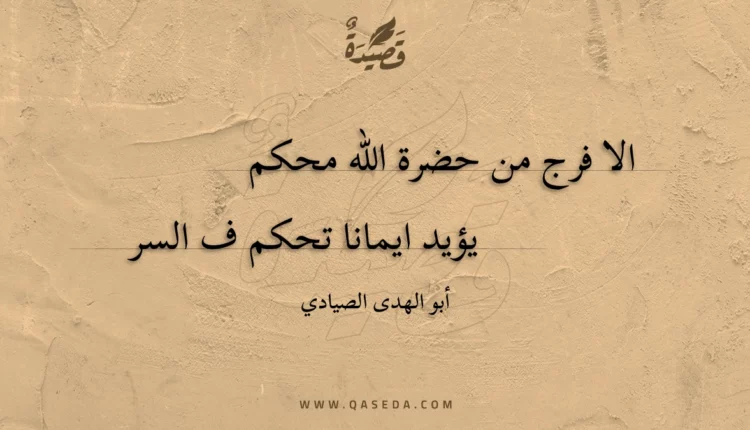 قَصِيْدَةٌ
الا فرج من حضرة الله محكم
يؤيد ايمانا تحكم ف السر
أبو الهدى الصيادي
WWW.QASEDA.COM